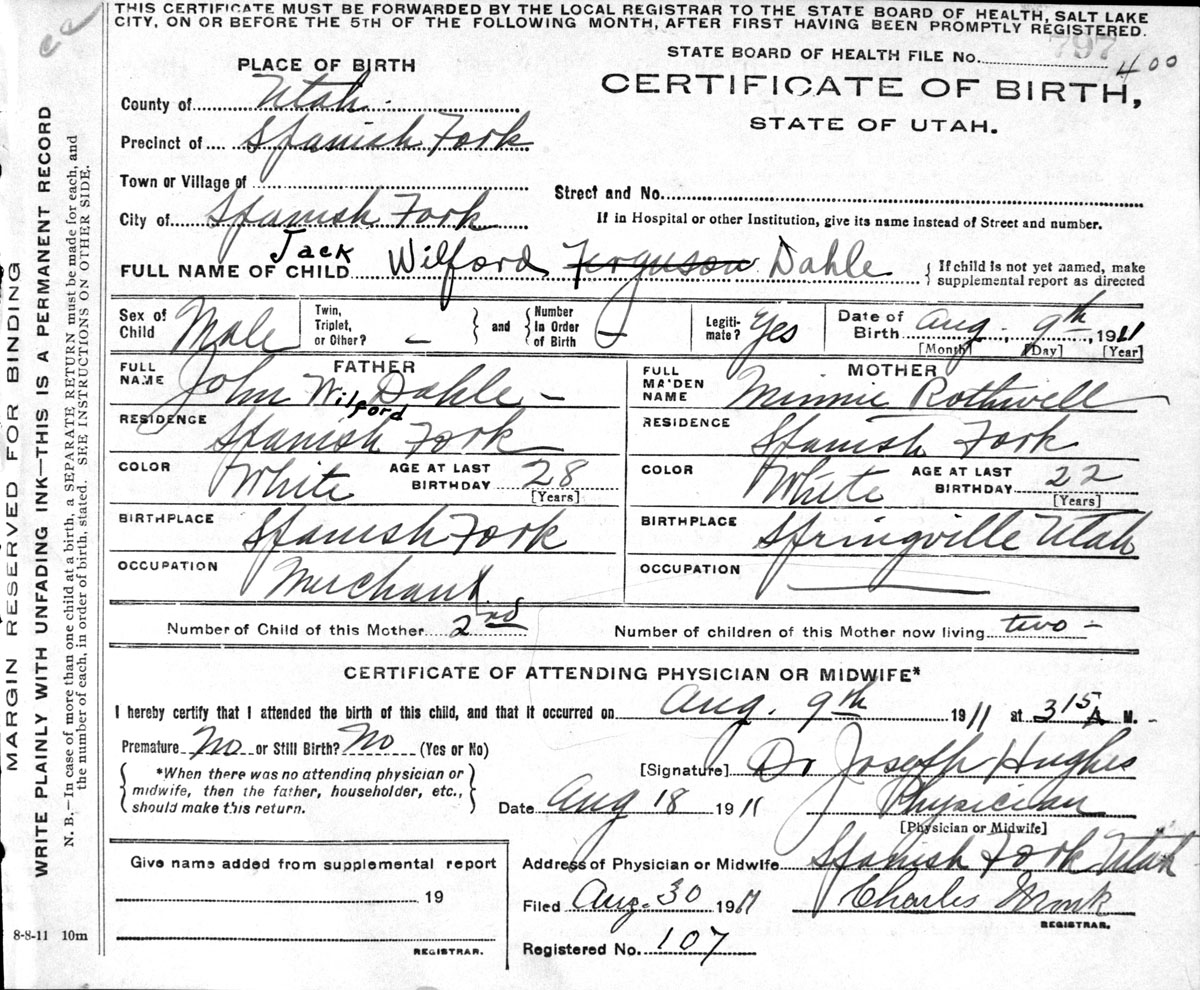 THIS CERTIFICATE MUST BE FORWARDED BY THE LOCAL REGISTRAR TO THE STATE BOARD OF HEALTH, SALT LAKE
CITY, ON OR BEFORE THE 5TH OF THE FOLLOWING MONTH, AFTER FIRST HAVING BEEN PROMPTLY REGISTERED.
STATE BOARD OF HEALTH FILE No. 797 400
CERTIFICATE OF BIRTH,
STATE OF UTAH.
PLACE OF BIRTH
County of Utah
Precinct of Spanish Fork
Town or Village of
Street and No.
City of Spanish Fork
If in Hospital or other Institution, give its name instead of Street and number.
FULL NAME OF CHILD Jack Wilford Ferguson Dahle
If child is not yet named, make
supplemental report as directed
Sex of Child Male
Twin, Triplet, or Other? –
and
Number In Order of Birth –
Legiti-mate? Yes
Date of Birth Aug. 9th, 1911
[Month] [Day] [Year]
FATHER
FULL NAME John Wilford Dahle –
RESIDENCE Spanish Fork
COLOR White
AGE AT LAST BIRTHDAY 28
[Years]
BIRTHPLACE Spanish Fork
OCCUPATION Merchant
MOTHER
FULL MA'DEN NAME Minnie Rothwell
RESIDENCE Spanish Fork
COLOR White
AGE AT LAST BIRTHDAY 22
[Years]
BIRTHPLACE Springville Utah
OCCUPATION
Number of Child of this Mother 2nd
Number of children of this Mother now living two –
CERTIFICATE OF ATTENDING PHYSICIAN OR MIDWIFE*
I hereby certify that I attended the birth of this child, and that it occurred on Aug. 9th 1911 at 3 15 A M. –
Premature No or Still Birth? No (Yes or No)
*When there was no attending physician or
midwife, then the father, householder, etc.,
should make this return.
[Signature] Dr Joseph Hughes
Date Aug 18 1911 Physician
[Physician or Midwife]
Address of Physician or Midwife Spanish Fork Utah
Filed Aug. 30 1911 Charles Monk
REGISTRAR.
Registered No. 107
Give name added from supplemental report
19
REGISTRAR.
8-8-11 10m
MARGIN RESERVED FOR BINDING
WRITE PLAINLY WITH UNFADING INK—THIS IS A PERMANENT RECORD
N. B.—In case of more than one child at a birth, a SEPARATE RETURN must be made for each, and
the number of each, in order of birth, stated. SEE INSTRUCTIONS ON OTHER SIDE.